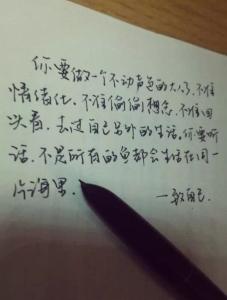 你要做一个不动声色的大人了.不准
情绪化.不准偷偷想念.不准回
头看.去过自己另外的生活.你要听
话.不是所有的鱼都会生活在同一
片海里.
—致自己.